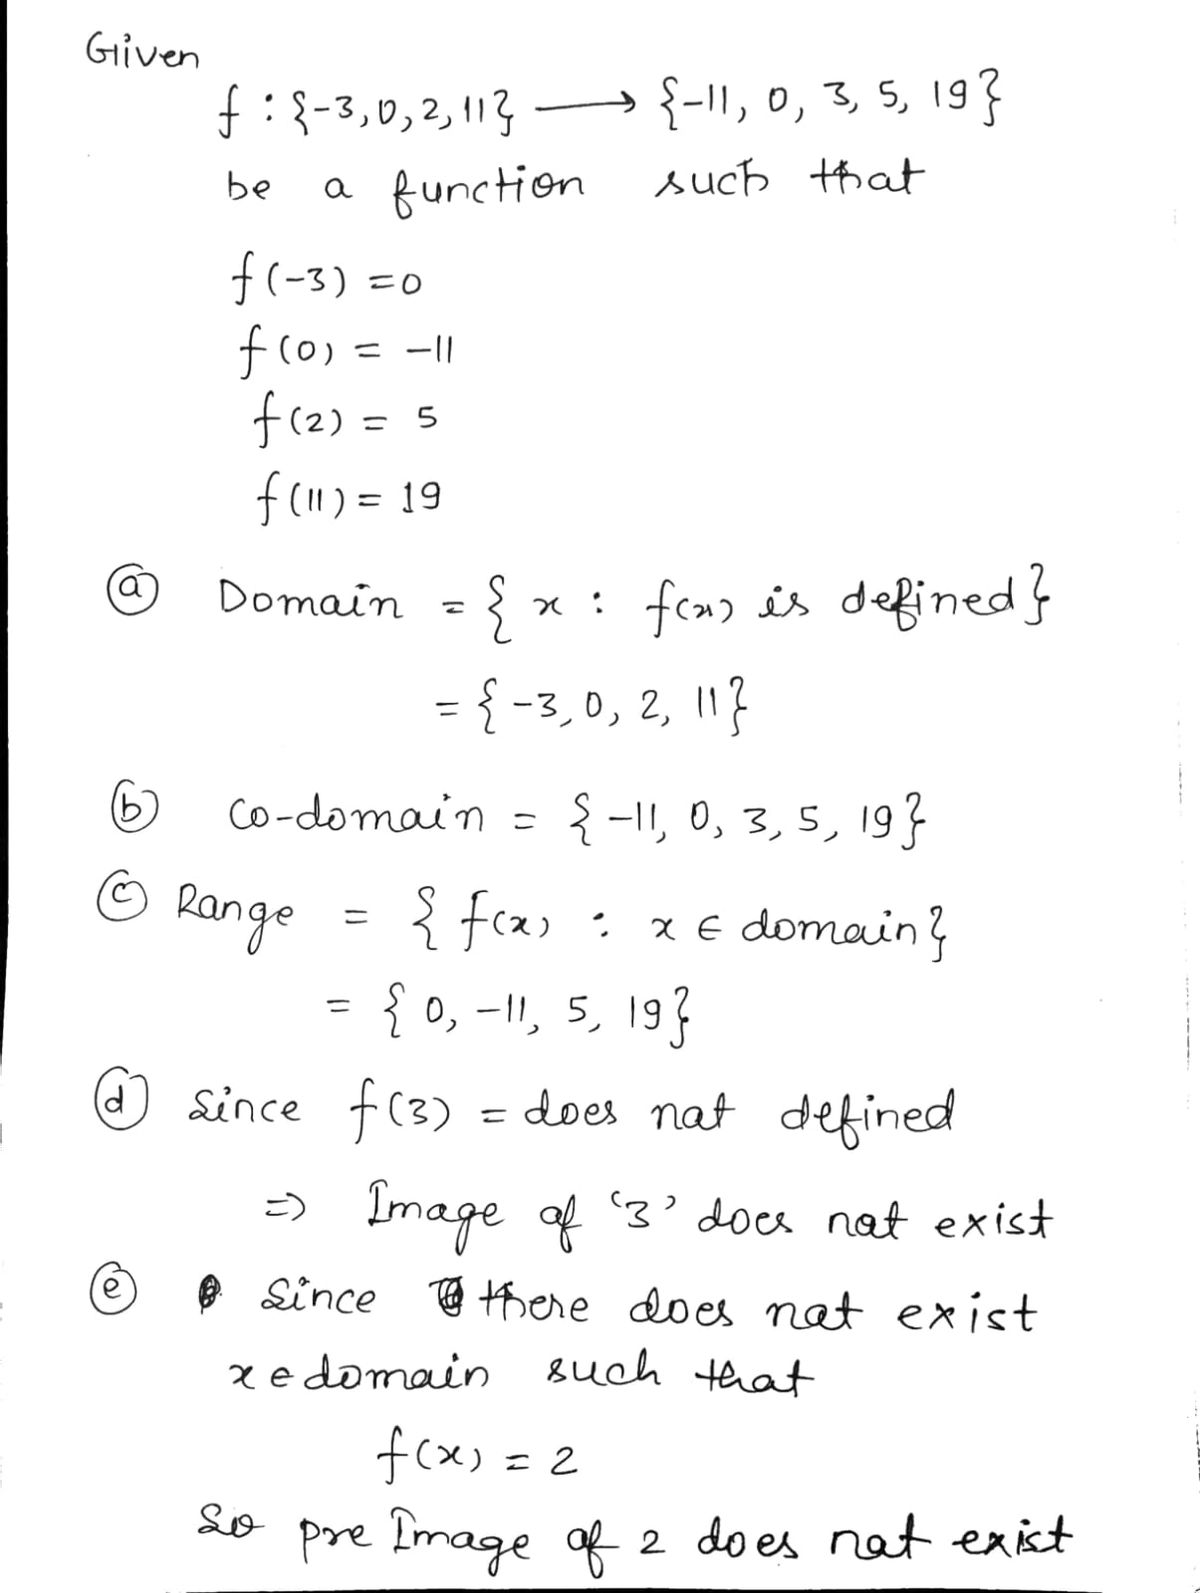 Given
f : {-3,0,2,11} ⟶ {-11, 0, 3, 5, 19}
be a function such that
f(-3) =0
f(0) = -11
f(2) = 5
f(11) = 19
ⓐ Domain = { x : f(x) is defined}
= { -3, 0, 2, 11}
ⓑ co-domain = { -11, 0, 3, 5, 19}
ⓒ Range = { f(x) : x ∈ domain}
= { 0, -11, 5, 19}
ⓓ since f(3) = does nat defined
=> Image of '3' does nat exist
ⓔ since there does nat exist
x ∈ domain such that
f(x) = 2
So pre Image of 2 does nat exist